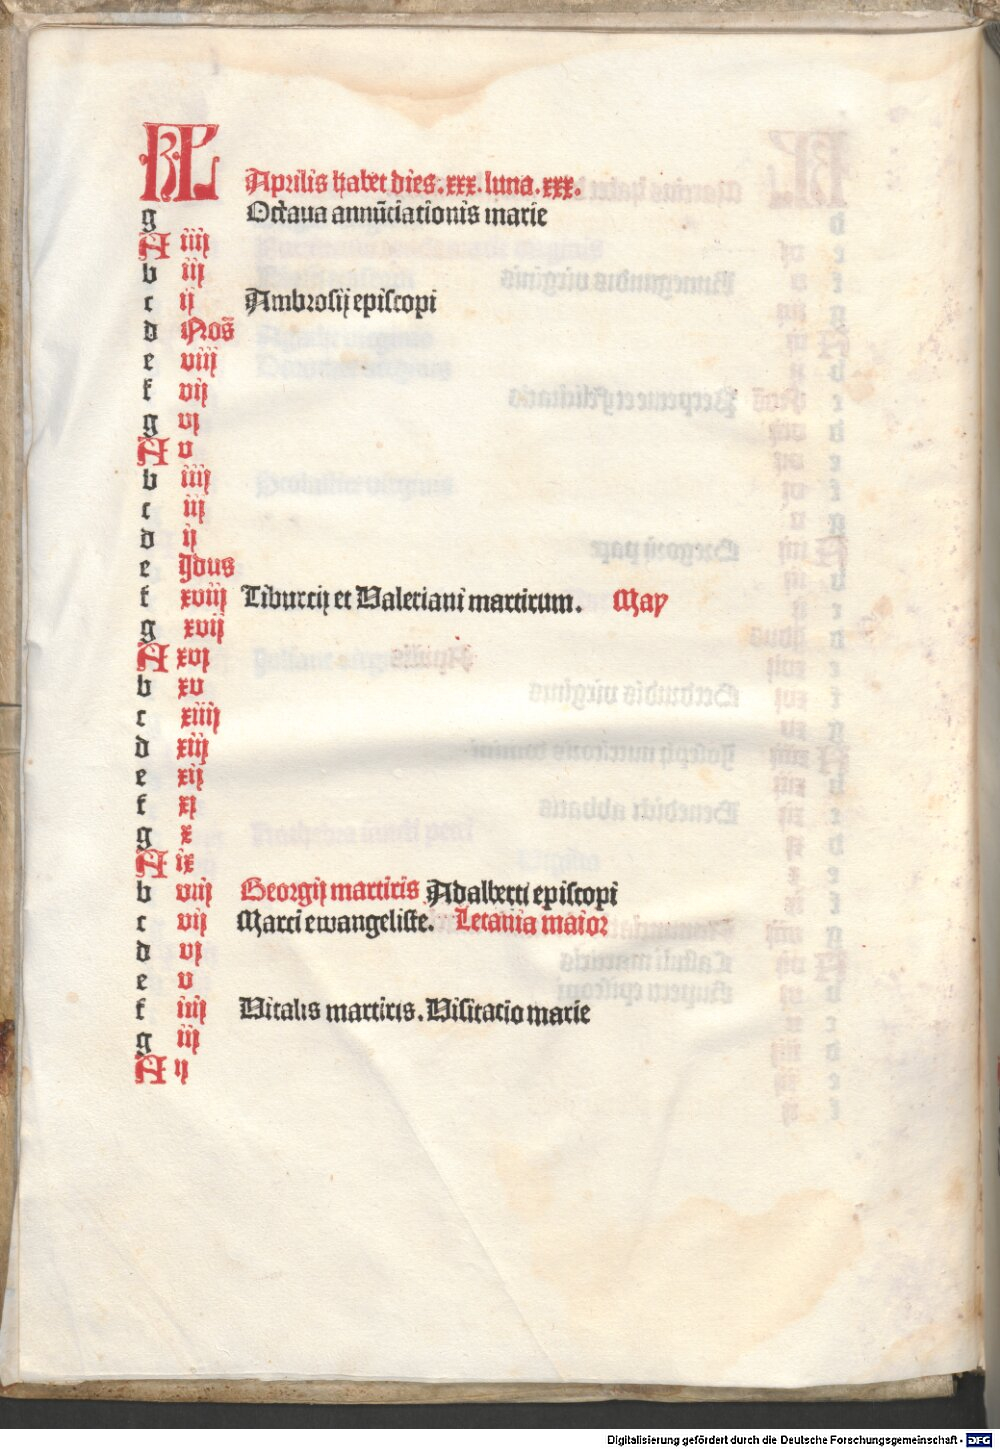 KL Aprilis habet dies.xxx.luna.xxx.
g Octaua annūciationis marie
A iiij
b iij
c ij Ambrosij episcopi
d Noñ
e viij
f vij
g vj
A v
b iiij
c iij
d ij
e Jdus
f xviij Tiburcij et Valeriani martirum. May
g xvij
A xvj
b xv
c xiiij
d xiij
e xij
f xj
g x
A ix
b viij Georgij martiris Adalberti episcopi
c vij Marci ewangeliste. Letania maior
d vj
e v
f iiij Vitalis martiris. Visitatio marie
g iij
A ij
Digitalisierung gefördert durch die Deutsche Forschungsgemeinschaft - DFG